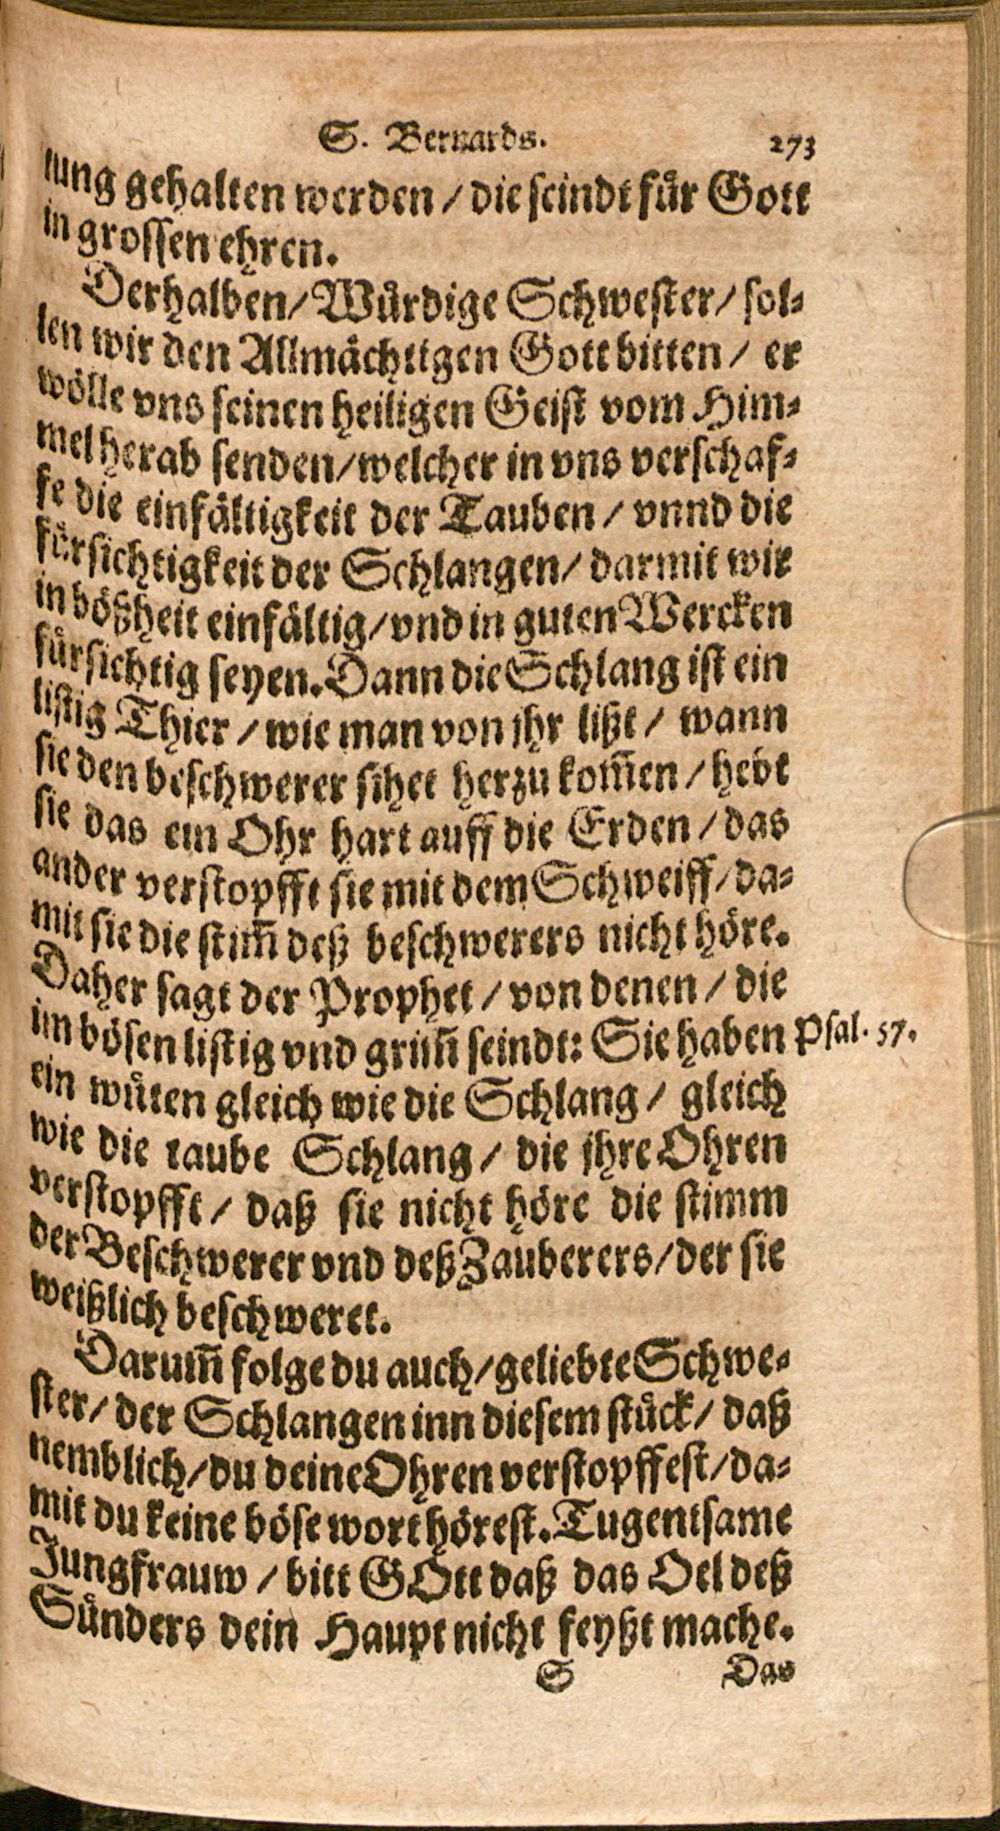 S. Bernards. 273
tung gehalten werden / die seindt für Gott
in grossen ehren.
Derhalben / Würdige Schwester / sol-
len wir den Allmächtigen Gott bitten / er
wölle vns seinen heiligen Geist vom Him-
mel herab senden / welcher in vns verschaf-
fe die einfältigkeit der Tauben / vnnd die
fürsichtigkeit der Schlangen / darmit wir
in bößheit einfältig / vnd in guten Wercken
fürsichtig seyen. Dann die Schlang ist ein
listig Thier / wie man von jhr lißt / wann
sie den beschwerer sihet herzu kom̃en / hebt
sie das ein Ohr hart auff die Erden / das
ander verstopfft sie mit dem Schweiff / da-
mit sie die stim̃ deß beschwerers nicht höre.
Daher sagt der Prophet / von denen / die
im bösen listig vnd grim̃ seindt: Sie haben Psal. 57.
ein wüten gleich wie die Schlang / gleich
wie die taube Schlang / die jhre Ohren
verstopfft / daß sie nicht höre die stimm
der Beschwerer vnd deß Zauberers / der sie
weißlich beschweret.
Darum̃ folge du auch / geliebte Schwe-
ster / der Schlangen inn diesem stück / daß
nemblich / du deine Ohren verstopffest / da-
mit du keine böse wort hörest. Tugentsame
Jungfrauw / bitt GOtt daß das Oel deß
Sünders dein Haupt nicht feyßt mache.
S Das